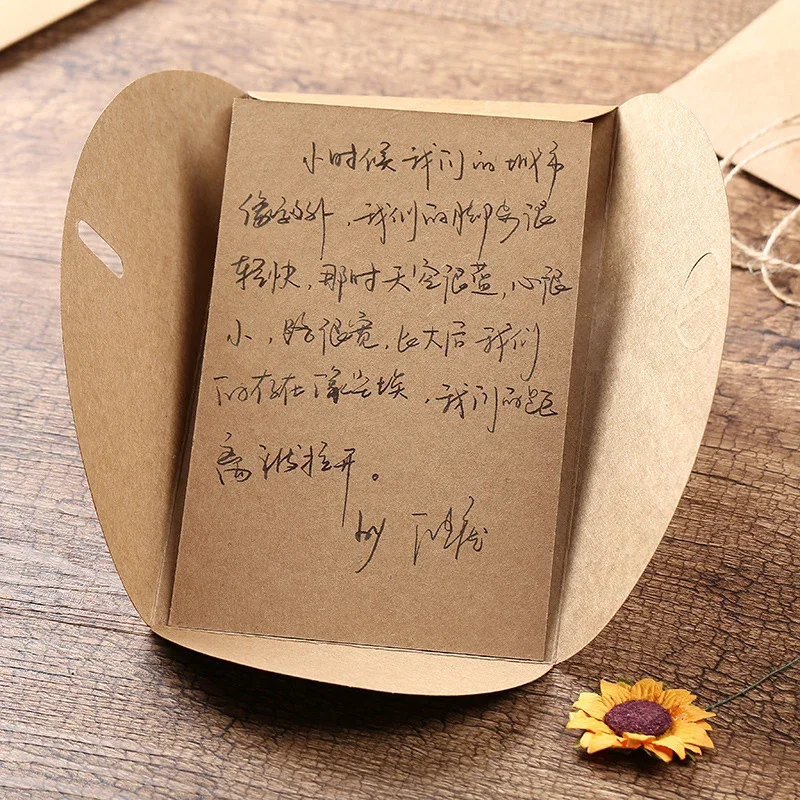 小时候我们的城市
像郊外,我们的脚步很
轻快,那时天空很蓝,心很
小,路很宽,长大后我们
的存在像尘埃,我们的距
离被拉开。
by